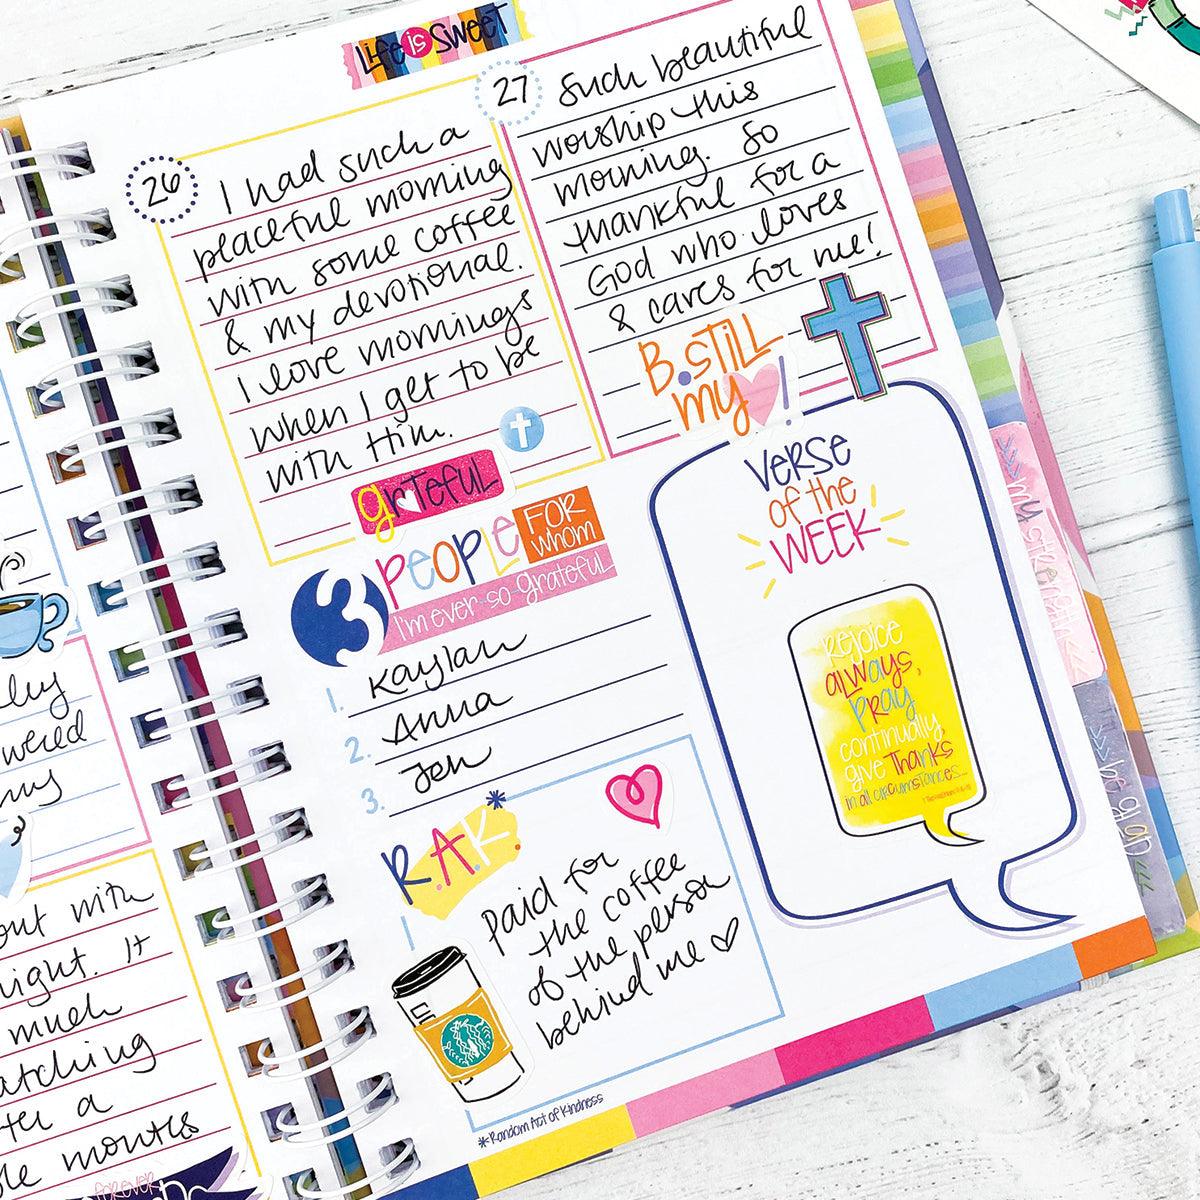 Life is Sweet
26
I had such a
peaceful morning
with some coffee
& my devotional.
I love mornings
when I get to be
with Him.
grateful
27
Such beautiful
worship this
morning. So
thankful for a
God who loves
& cares for me!
B. STILL
my !
3 PEOPLE FOR whom
I'm ever so grateful
1. Kaylan
2. Anna
3. Jen
R.A.K.*
Paid for
the coffee
of the person
behind me
*Random Act of Kindness
VERSE
of the
WEEK
Rejoice
always,
Pray
continually
give Thanks
in all circumstances...
my strength
be glad
out with
night. It
much
a
months
forever